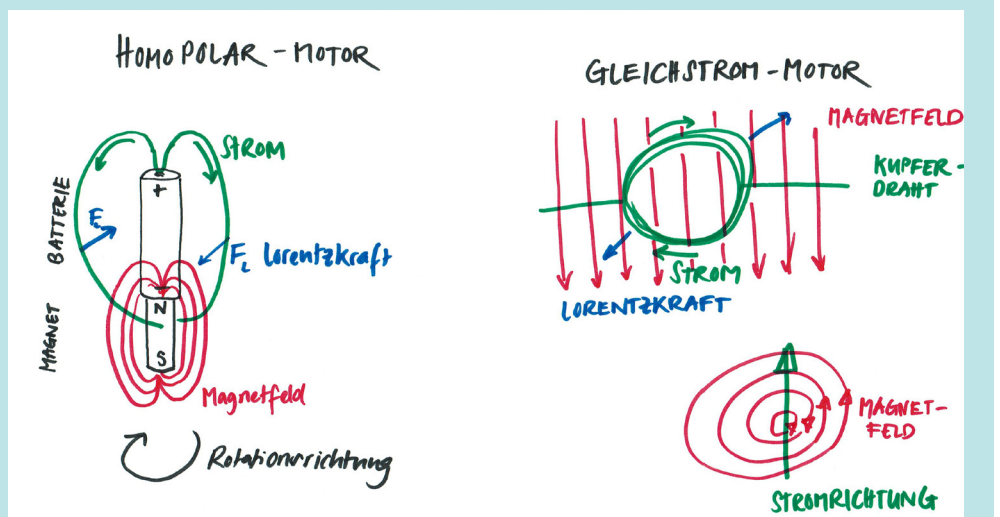 HOMOPOLAR - MOTOR
STROM
+
BATTERIE
F_L
F_L Lorentzkraft
MAGNET
N
S
Magnetfeld
Rotationsrichtung
GLEICHSTROM - MOTOR
MAGNETFELD
KUPFER-
DRAHT
STROM
LORENTZKRAFT
MAGNET-
FELD
STROMRICHTUNG